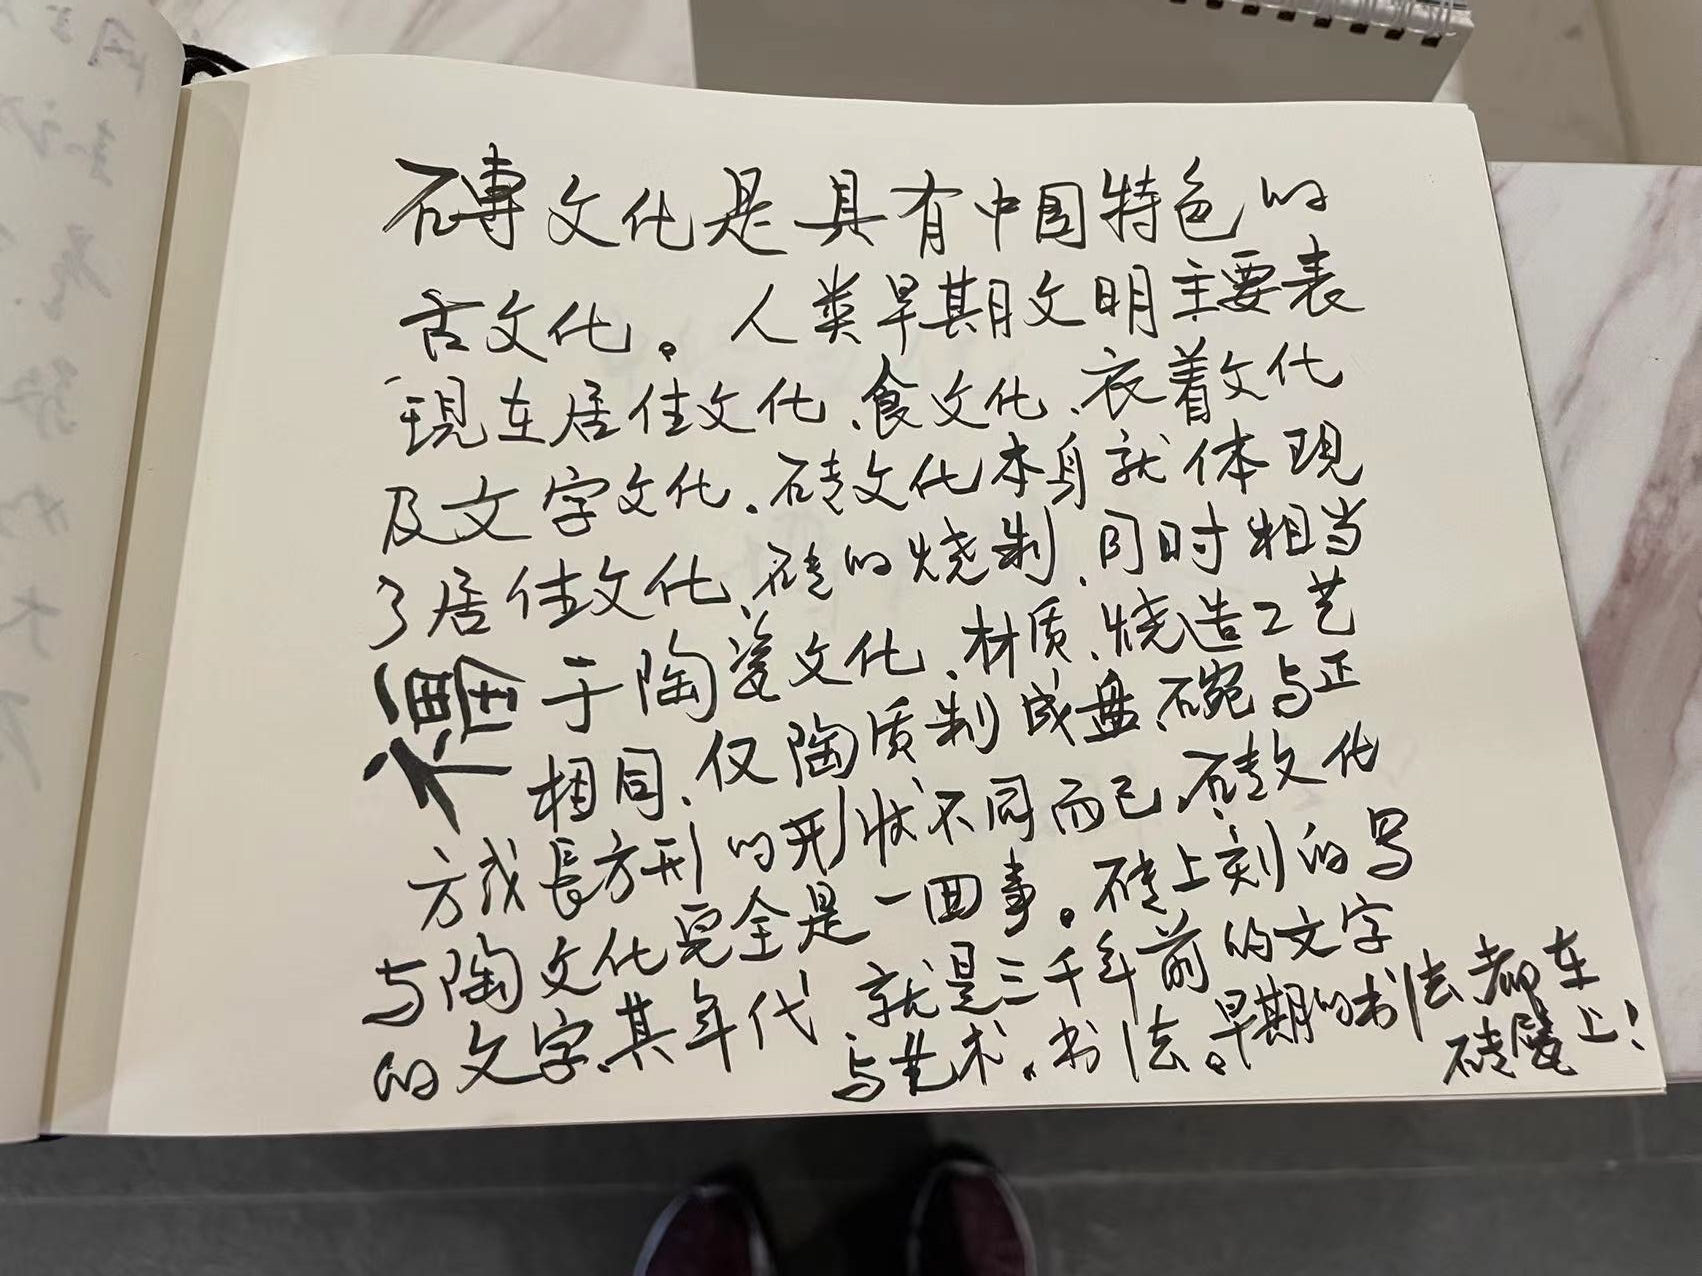 磚文化是具有中国特色的
古文化。人类早期文明主要表
現在居住文化、食文化、衣着文化
及文字文化、砖文化本身就体現
了居住文化、砖的烧制、同时相当
于陶瓷文化、材质、烧造工艺
相同、仅陶质制成盘、碗与正
方或長方形的形状不同而已、砖文化
与陶文化完全是一回事。砖上刻的写
的文字、其年代、就是三千年前的文字
与艺术、书法。早期的书法都在
砖上！